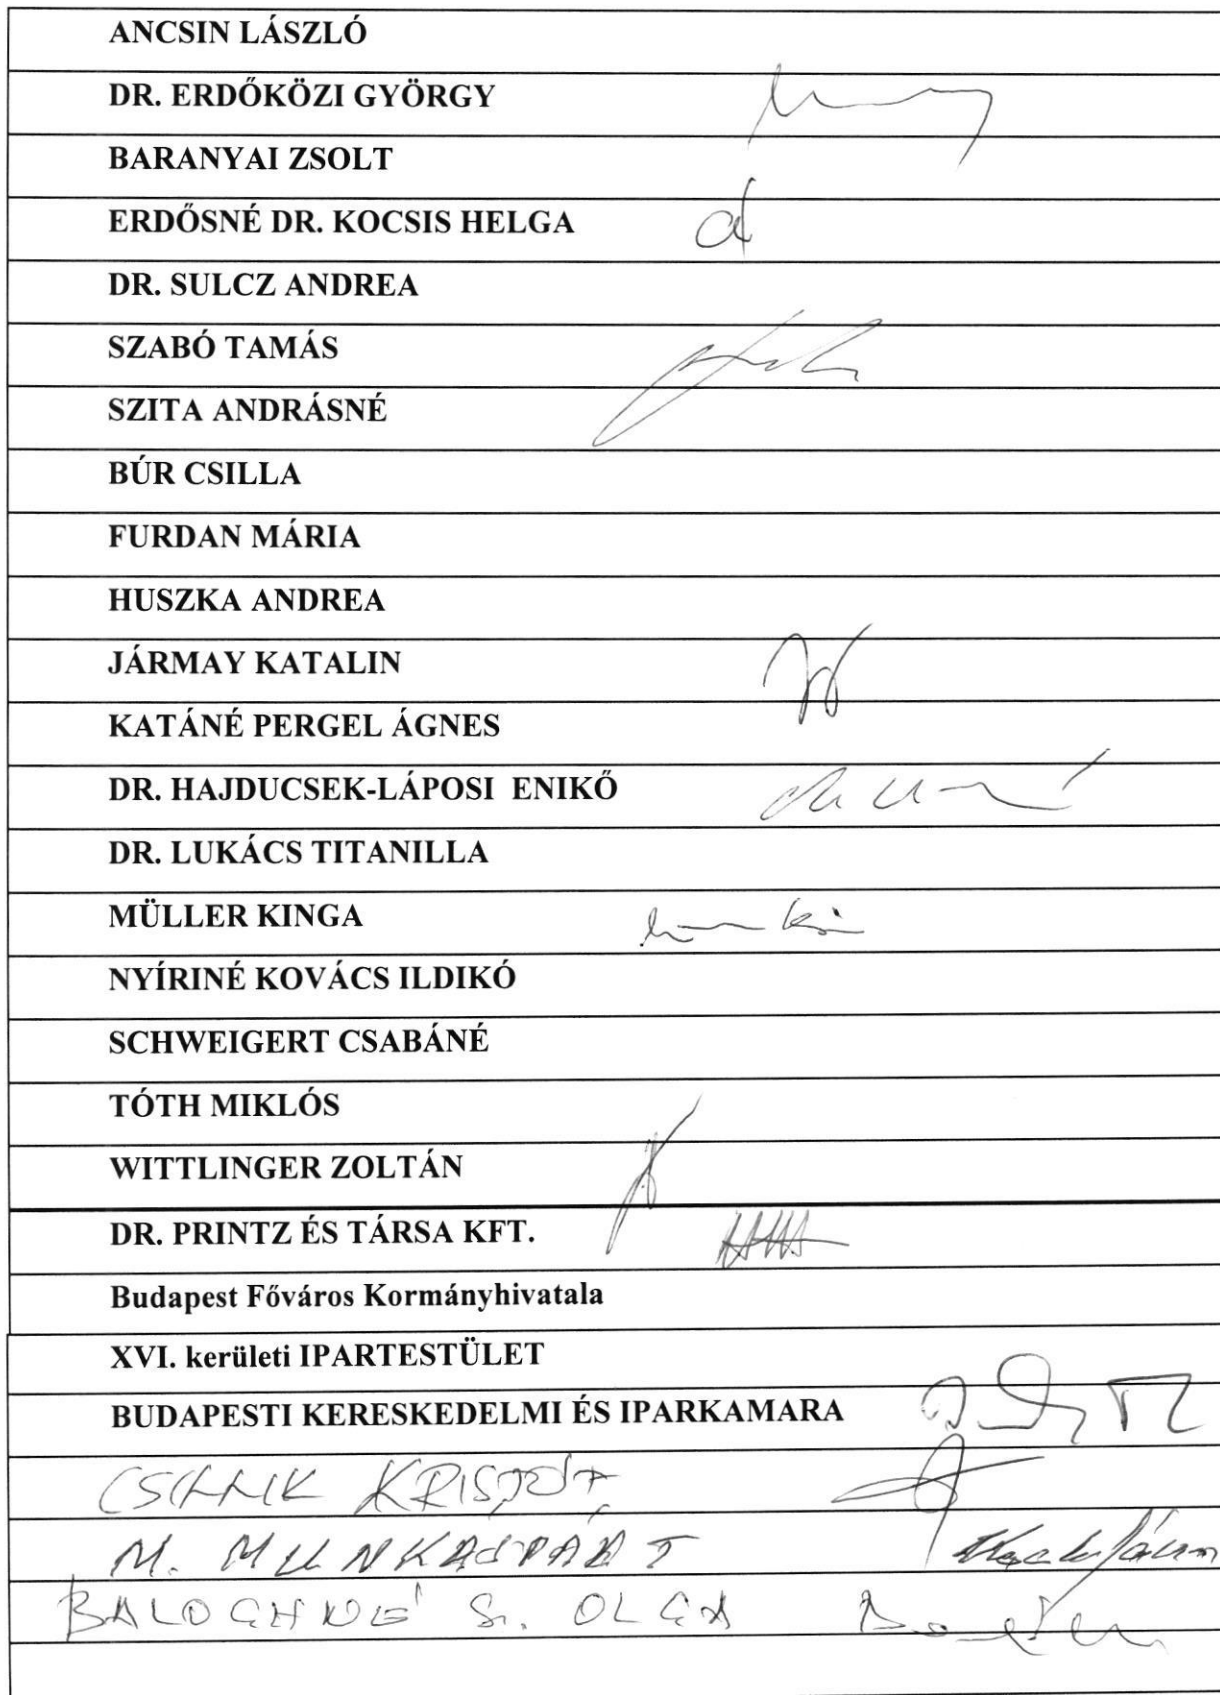 ANCSIN LÁSZLÓ
DR. ERDŐKÖZI GYÖRGY
BARANYAI ZSOLT
ERDŐSNÉ DR. KOCSIS HELGA
DR. SULCZ ANDREA
SZABÓ TAMÁS
SZITA ANDRÁSNÉ
BÚR CSILLA
FURDAN MÁRIA
HUSZKA ANDREA
JÁRMAY KATALIN
KATÁNÉ PERGEL ÁGNES
DR. HAJDUCSEK-LÁPOSI ENIKŐ
DR. LUKÁCS TITANILLA
MÜLLER KINGA
NYÍRINÉ KOVÁCS ILDIKÓ
SCHWEIGERT CSABÁNÉ
TÓTH MIKLÓS
WITTLINGER ZOLTÁN
DR. PRINTZ ÉS TÁRSA KFT.
Budapest Főváros Kormányhivatala
XVI. kerületi IPARTESTÜLET
BUDAPESTI KERESKEDELMI ÉS IPARKAMARA
M. MUNKÁSPÁRT
BALOGHNÉ S. OLGA